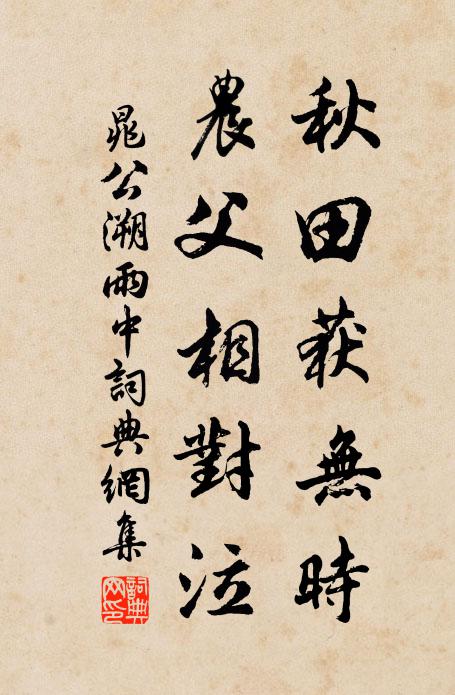 秋田获無時
農父相對泣
晁公溯雨中詞典網集
詞典網印